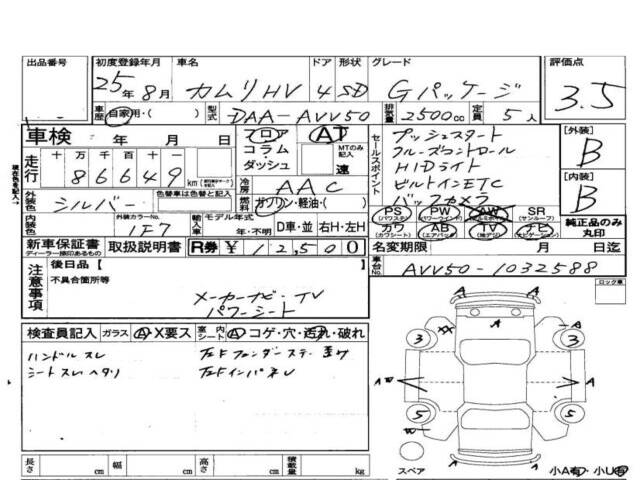 出品番号 初度登録年月 車名 ドア 形状 グレード 評価点
25年8月 カムリHV 4 SD Gパッケージ 3.5
車歴 自家用・( ) 型式 DAA-AVV50 排気量 2500cc 定員 5人
車検 年 月 日
フロア AT
コラム MTのみ記入
ダッシュ 速
走行 十 万 千 百 十 一
86649 km
冷房 AAC
外装色 シルバー 色替車は色替と記入
燃料 ガソリン・軽油・( )
内装色 外装カラーNo. 1F7
輸入車 モデル年式 年・不明 D車・並 右H・左H
セールスポイント
プッシュスタート
クルーズコントロール
HIDライト
ビルトインETC
バックカメラ
PS PW AW SR
(パワステ) (パワーウインド) (サンルーフ)
カワ AB TV ナビ
(カワシート) (エアバック) (ナビゲーション)
[外装]
B
[内装]
B
純正品のみ丸印
新車保証書 取扱説明書 R券 ¥12500
ディーラー捺印あるもの
名変期限 月 日迄
車台No. AVV50-1032588
注意事項
後日品[ ]
不具合箇所等
メーカーナビ・TV
パワーシート
ロック車
検査員記入 ガラス A・X要ス 室内 シート A コゲ・穴・汚れ・破れ
ハンドル スレ
シートスレヘタリ
A A
3 3
A A
A A
5 5
スペア
小A有・小U有
長さ cm 幅 cm 高さ cm 積載量 kg